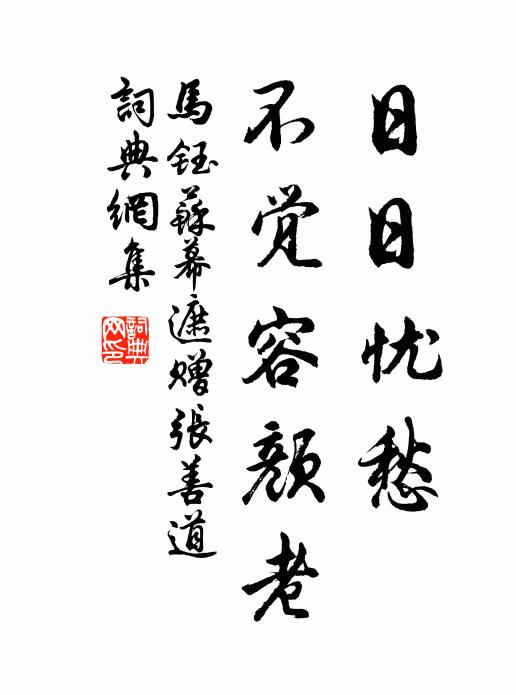 日日忧愁
不觉容颜老
馬鈺蘇幕遮赠張善道
詞典網集
詞典网印